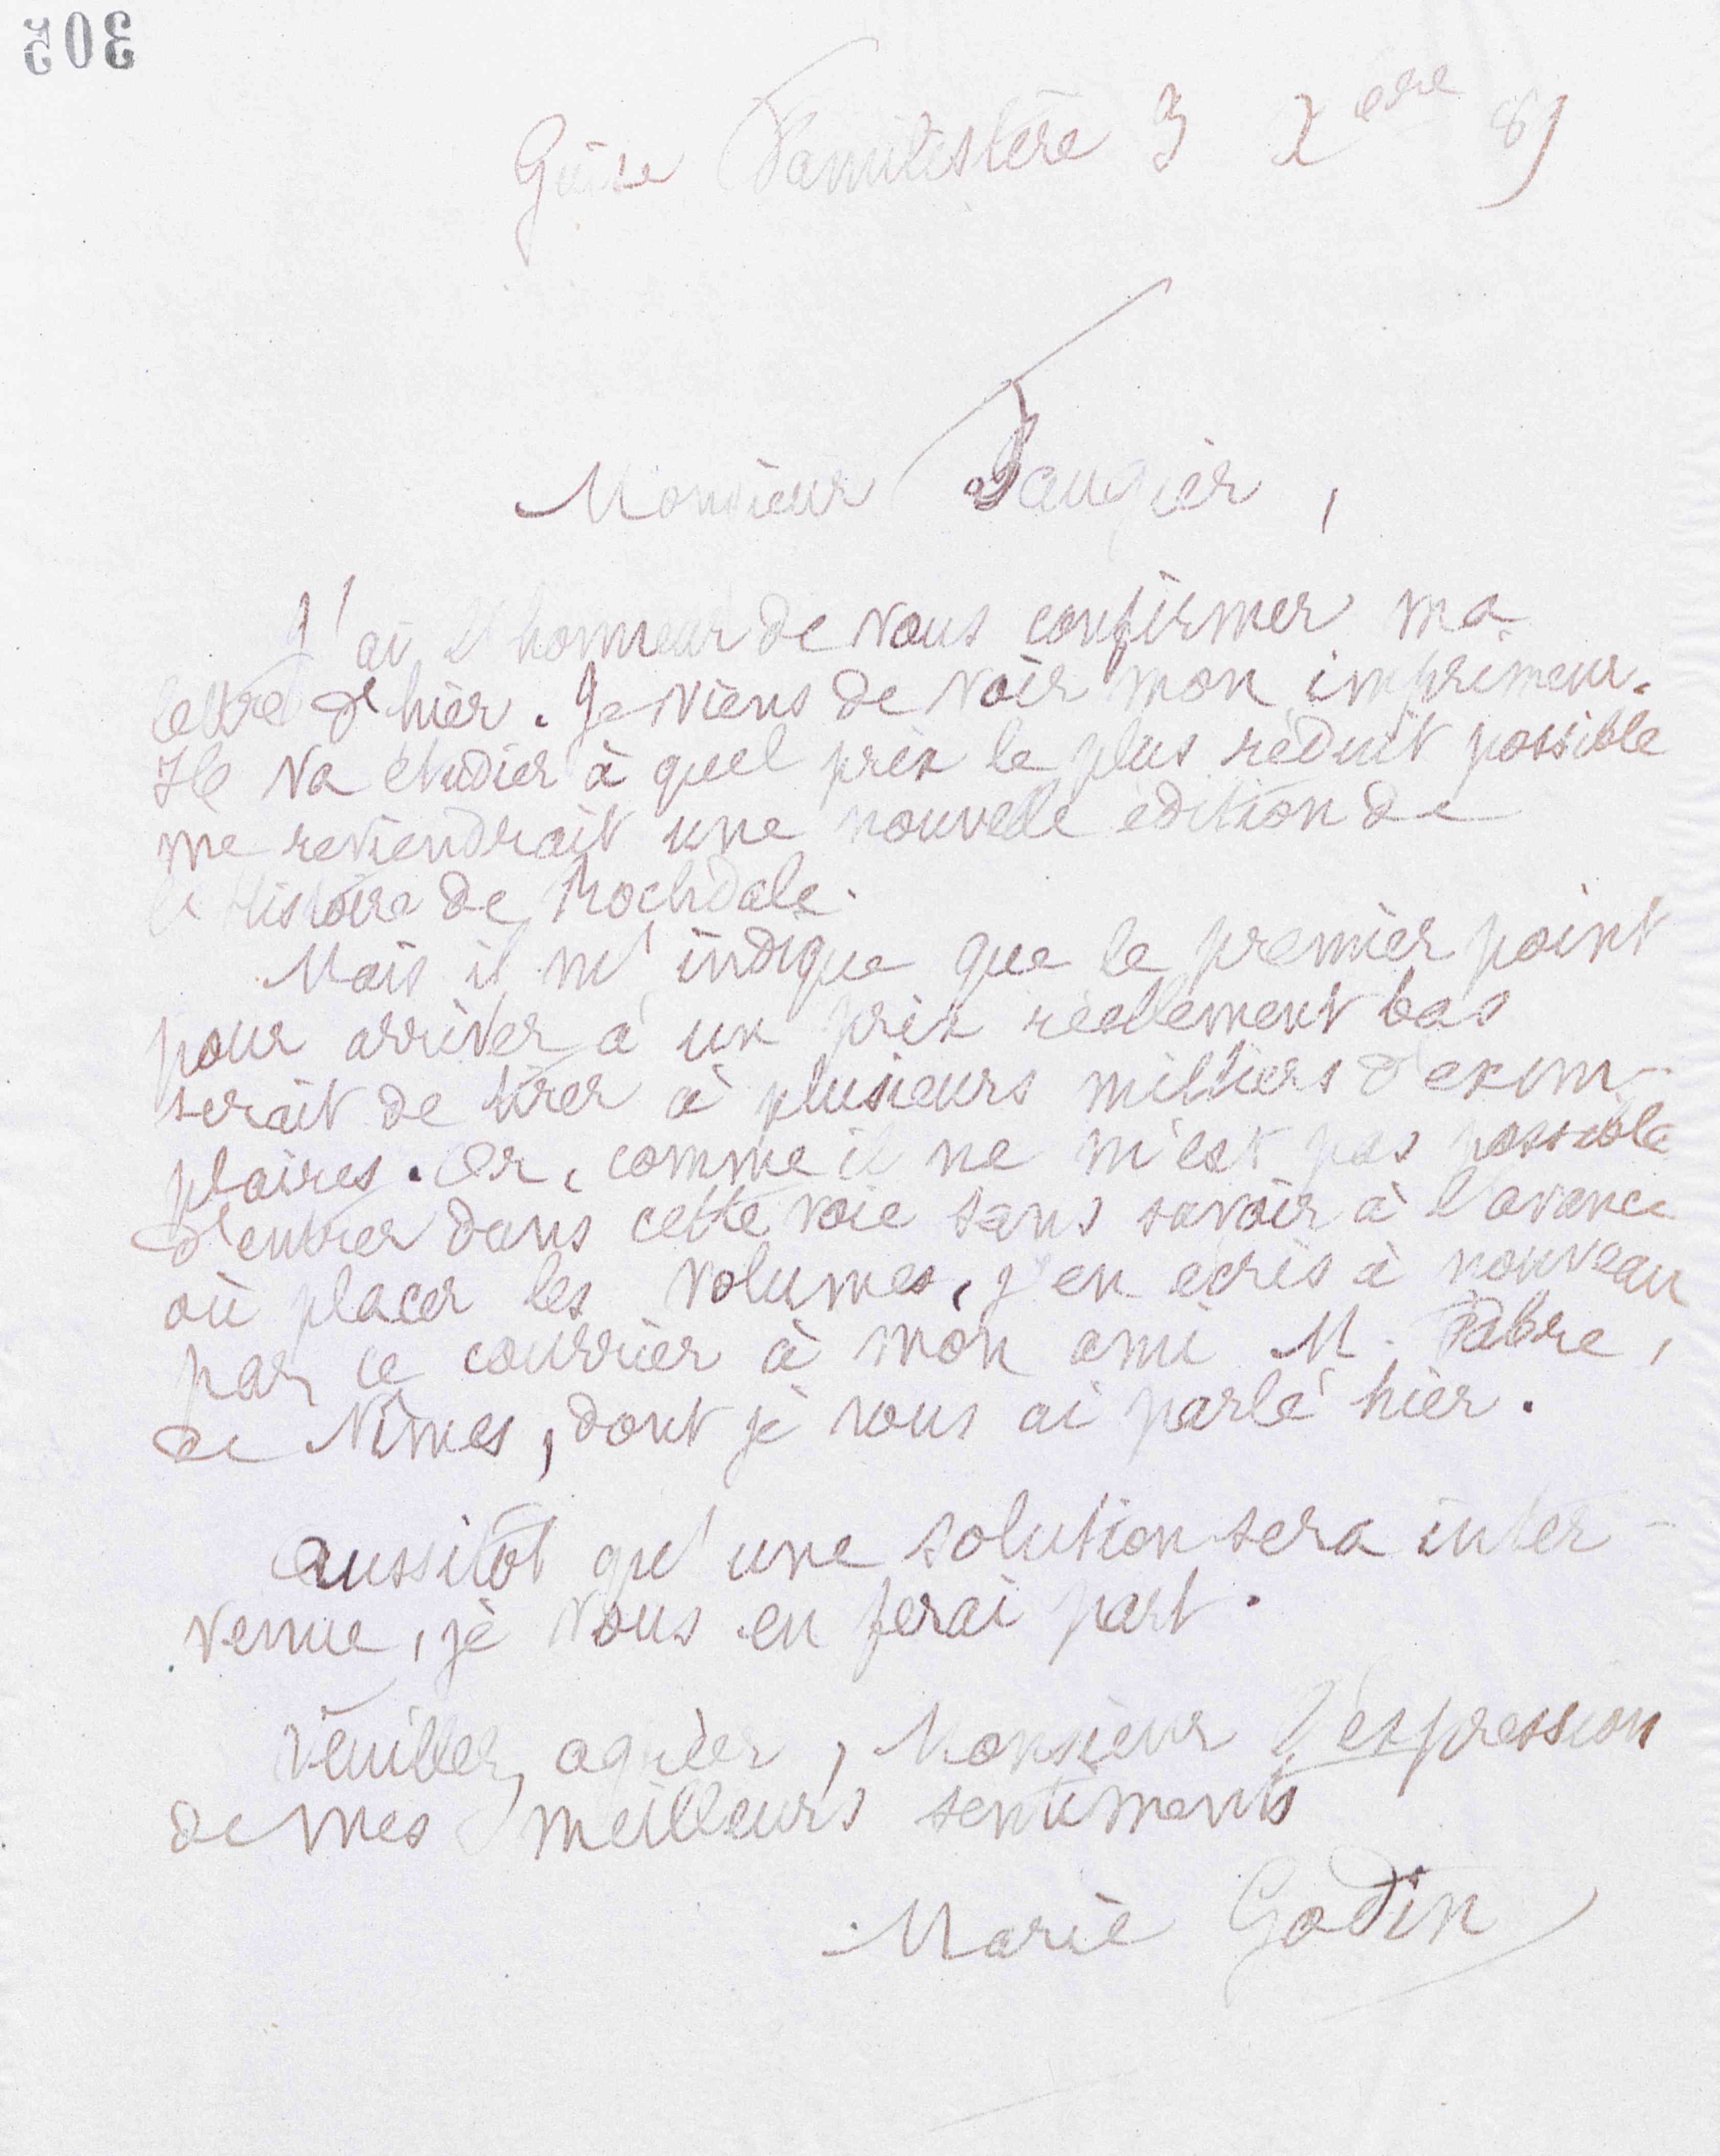 305
Guise Familistère 3 Xbre 89
Monsieur Faugier,
J'ai l'honneur de vous confirmer ma
lettre d'hier. Je viens de voir mon imprimeur.
Il va étudier à quel prix le plus réduit possible
me reviendrait une nouvelle édition de
l'Histoire de Rochdale.
Mais il m'indique que le premier point
pour arriver à un prix réellement bas
serait de tirer à plusieurs milliers d'exem-
plaires. Or, comme il ne m'est pas possible
d'entrer dans cette voie sans savoir à l'avance
où placer les volumes, j'en écris à nouveau
par ce courrier à mon ami M. Fabre,
de Nîmes, dont je vous ai parlé hier.
Aussitôt qu'une solution sera inter-
venue, je vous en ferai part.
Veuillez agréer, Monsieur l'expression
de mes meilleurs sentiments
Marie Godin